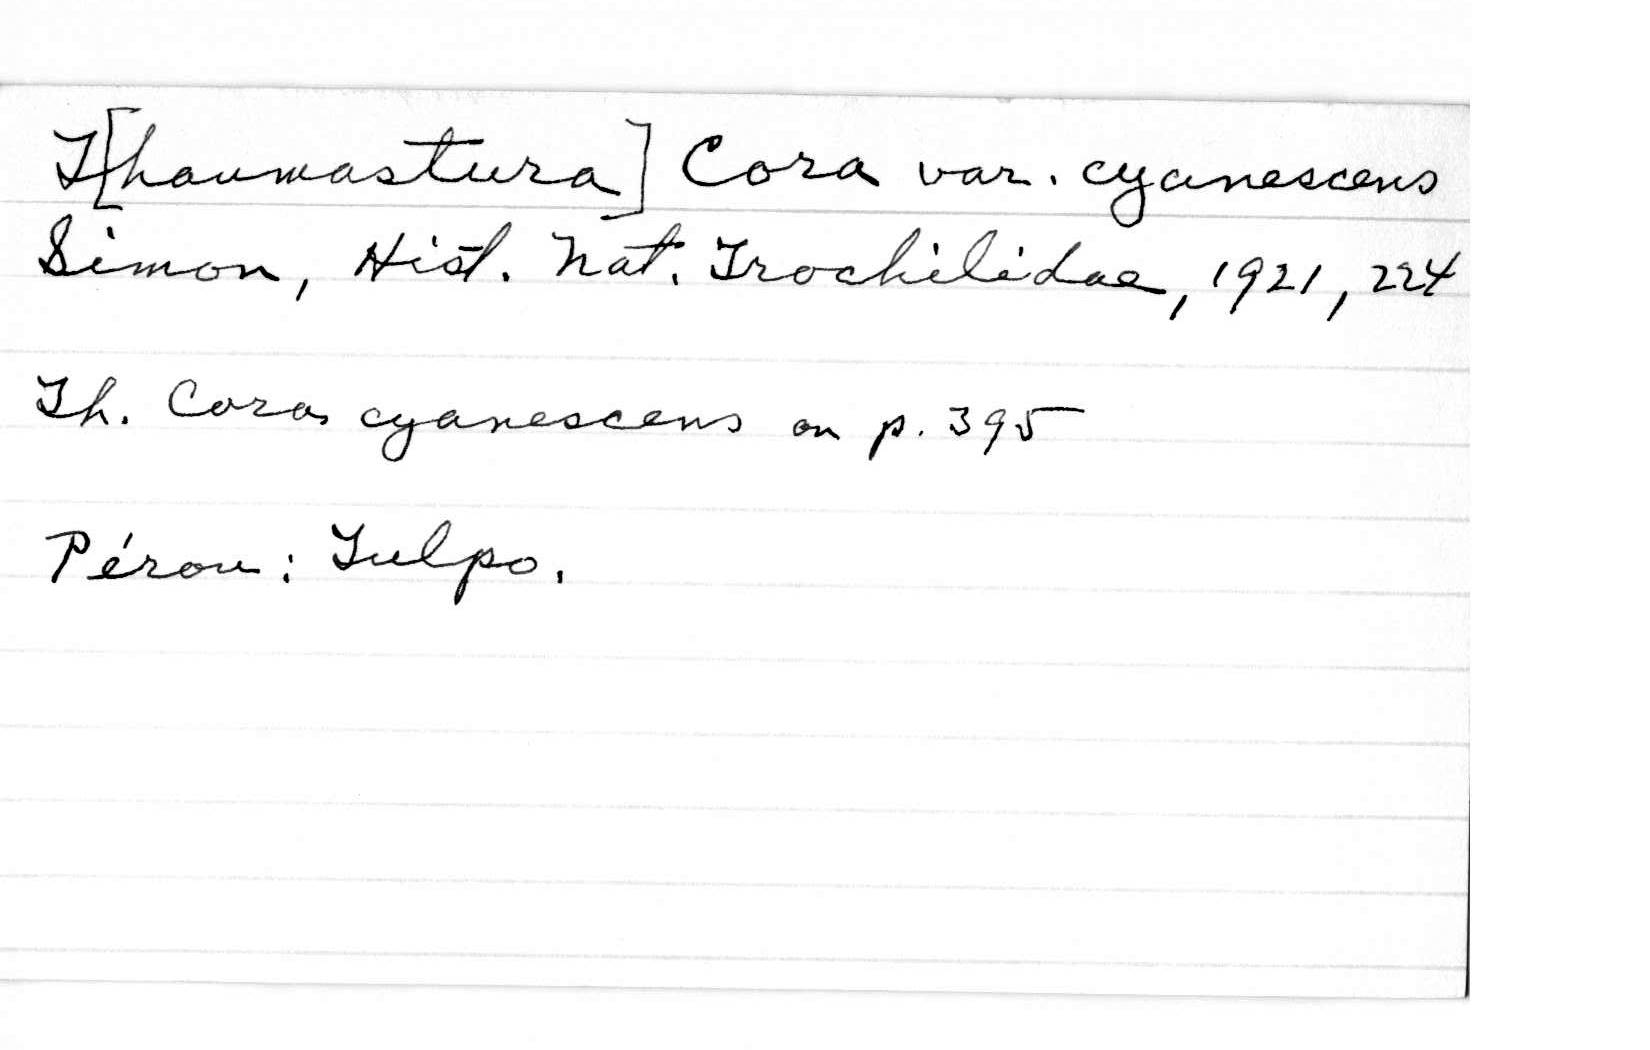 T[haumastura] Cora var. cyanescens
Simon, Hist. Nat. Trochilidae, 1921, 224
Th. Cora cyanescens on p. 395
Pérou: Tulpo.